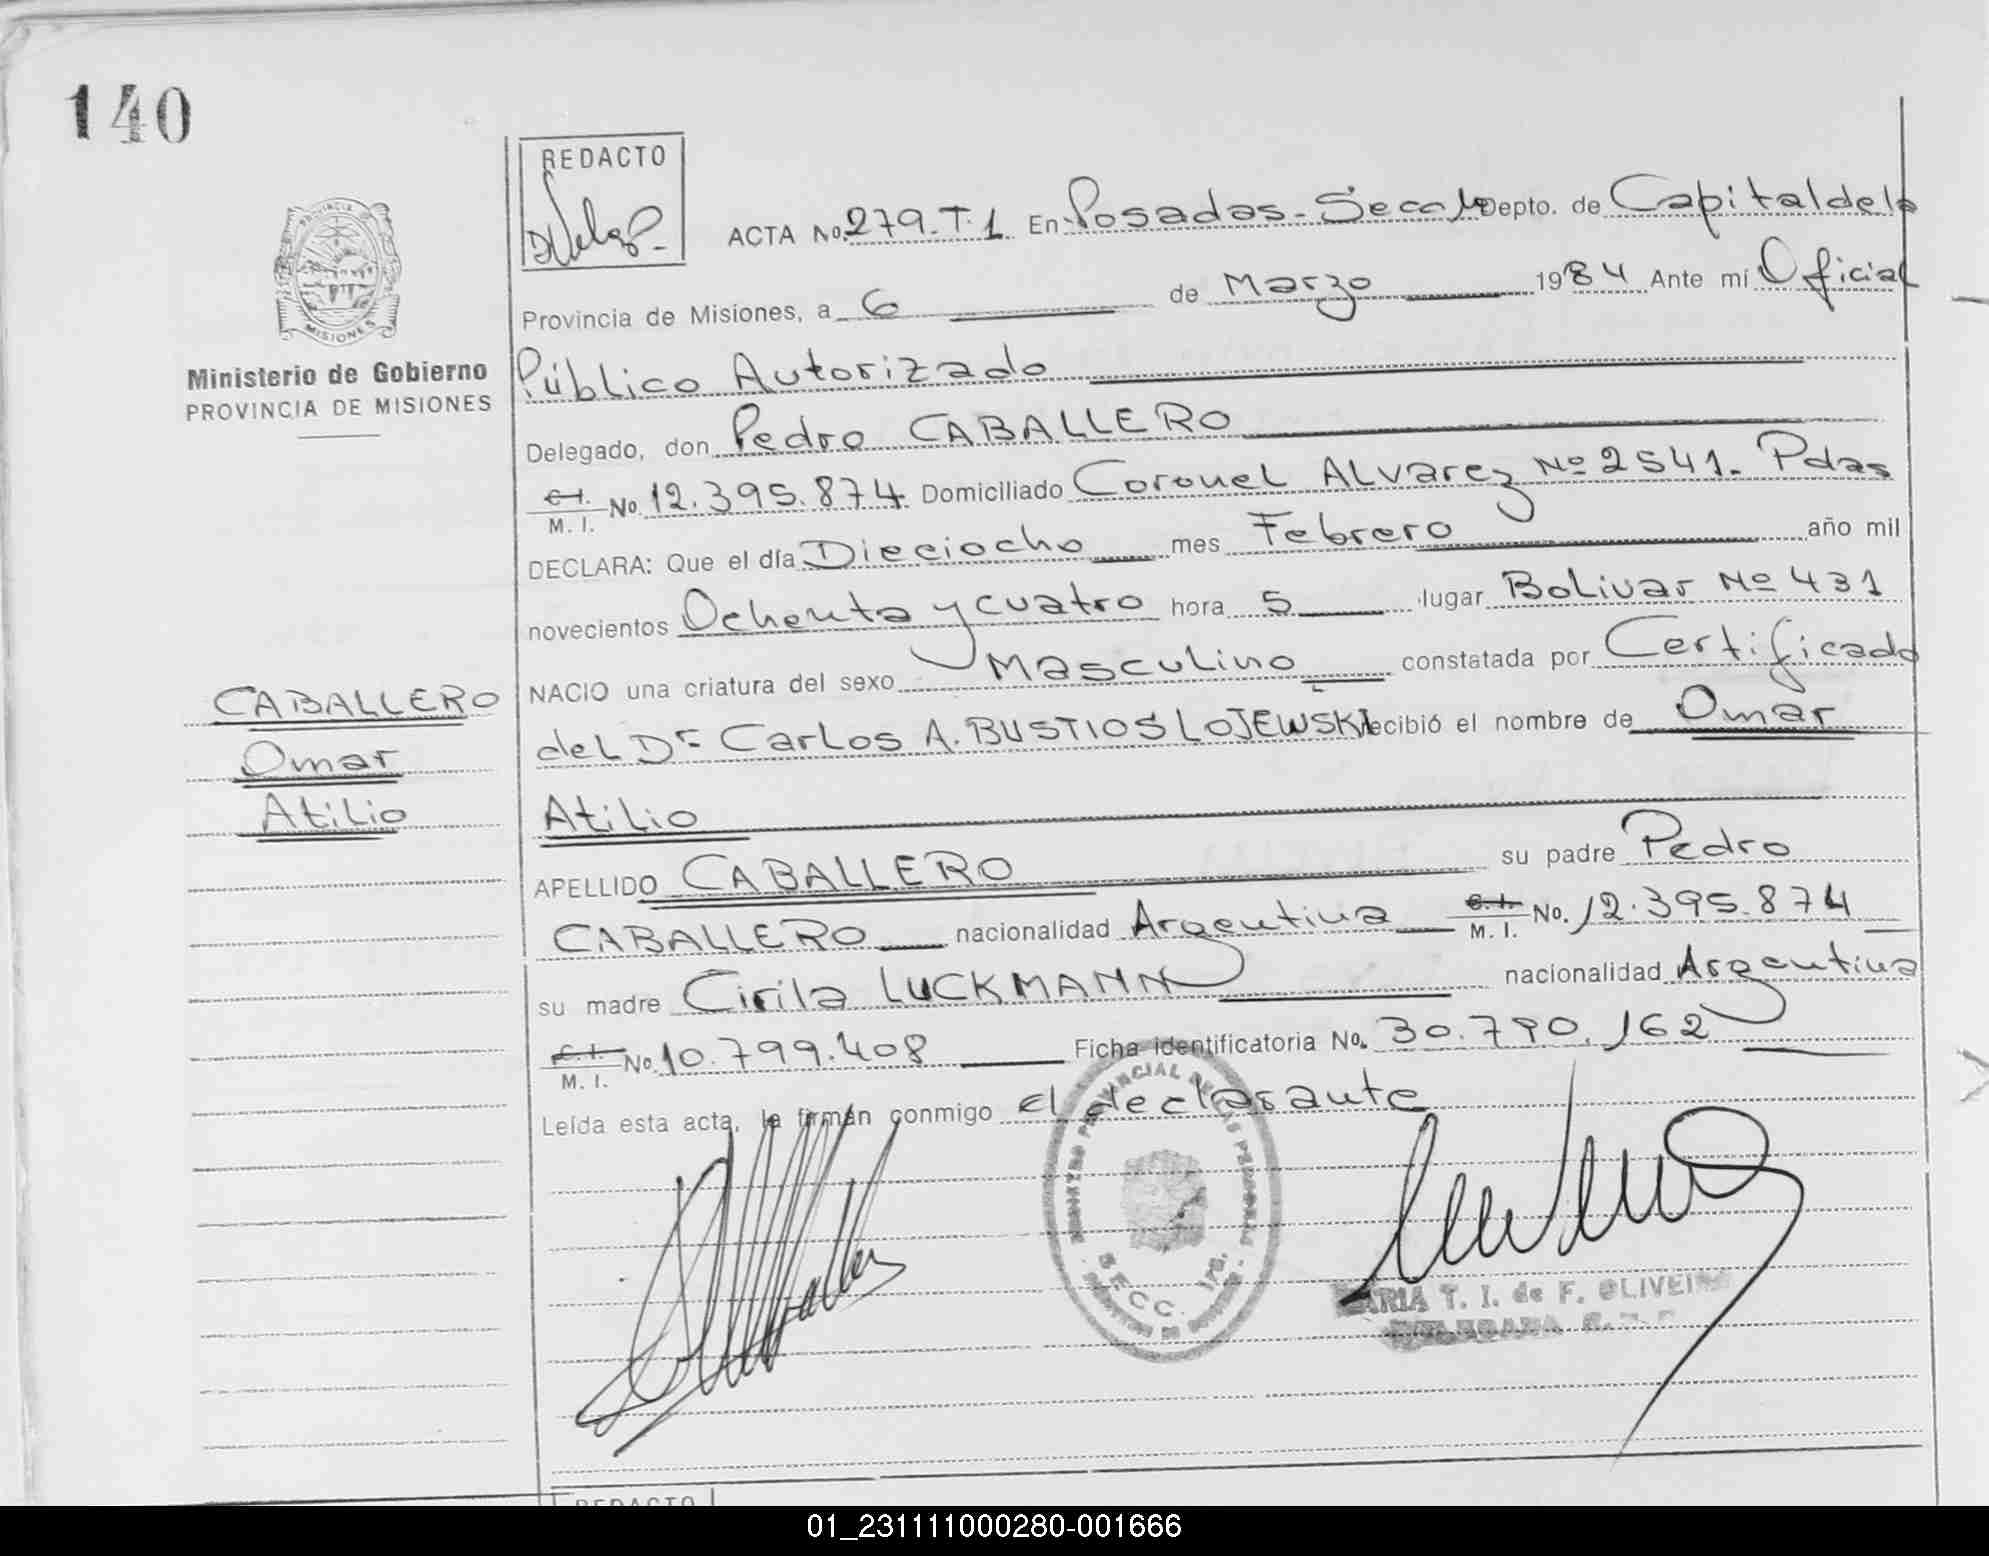 140
REDACTO
ACTA No. 279.T.1 En Posadas-Secc 1ª Depto. de Capital de la
Provincia de Misiones, a 6 de Marzo 1984 Ante mí Oficial
Público Autorizado
Delegado, don Pedro CABALLERO
C.I. M. I. No. 12.395.874 Domiciliado Coronel ALvarez Nº 2541. Pdas
DECLARA: Que el día Dieciocho mes Febrero año mil
novecientos Ochenta y cuatro hora 5 lugar BoLivar Nº 431
NACIO una criatura del sexo Masculino constatada por Certificado
deL Dr CarLos A. BUSTIOS LOJEWSKI recibió el nombre de Omar
AtiLio
APELLIDO CABALLERO su padre Pedro
CABALLERO nacionalidad Argentina C.I. M. I. No. 12.395.874
su madre Cirila LUCKMANN nacionalidad Argentina
C.I. M. I. No. 10.799.408 Ficha identificatoria No. 30.790.162
Leída esta acta, la firman conmigo el declarante
PROVINCIA DE
MISIONES
Ministerio de Gobierno
PROVINCIA DE MISIONES
CABALLERO
Omar
AtiLio
SECC. 1ra.
MARIA T. I. de F. OLIVEIRA
REDACTO
01_231111000280-001666